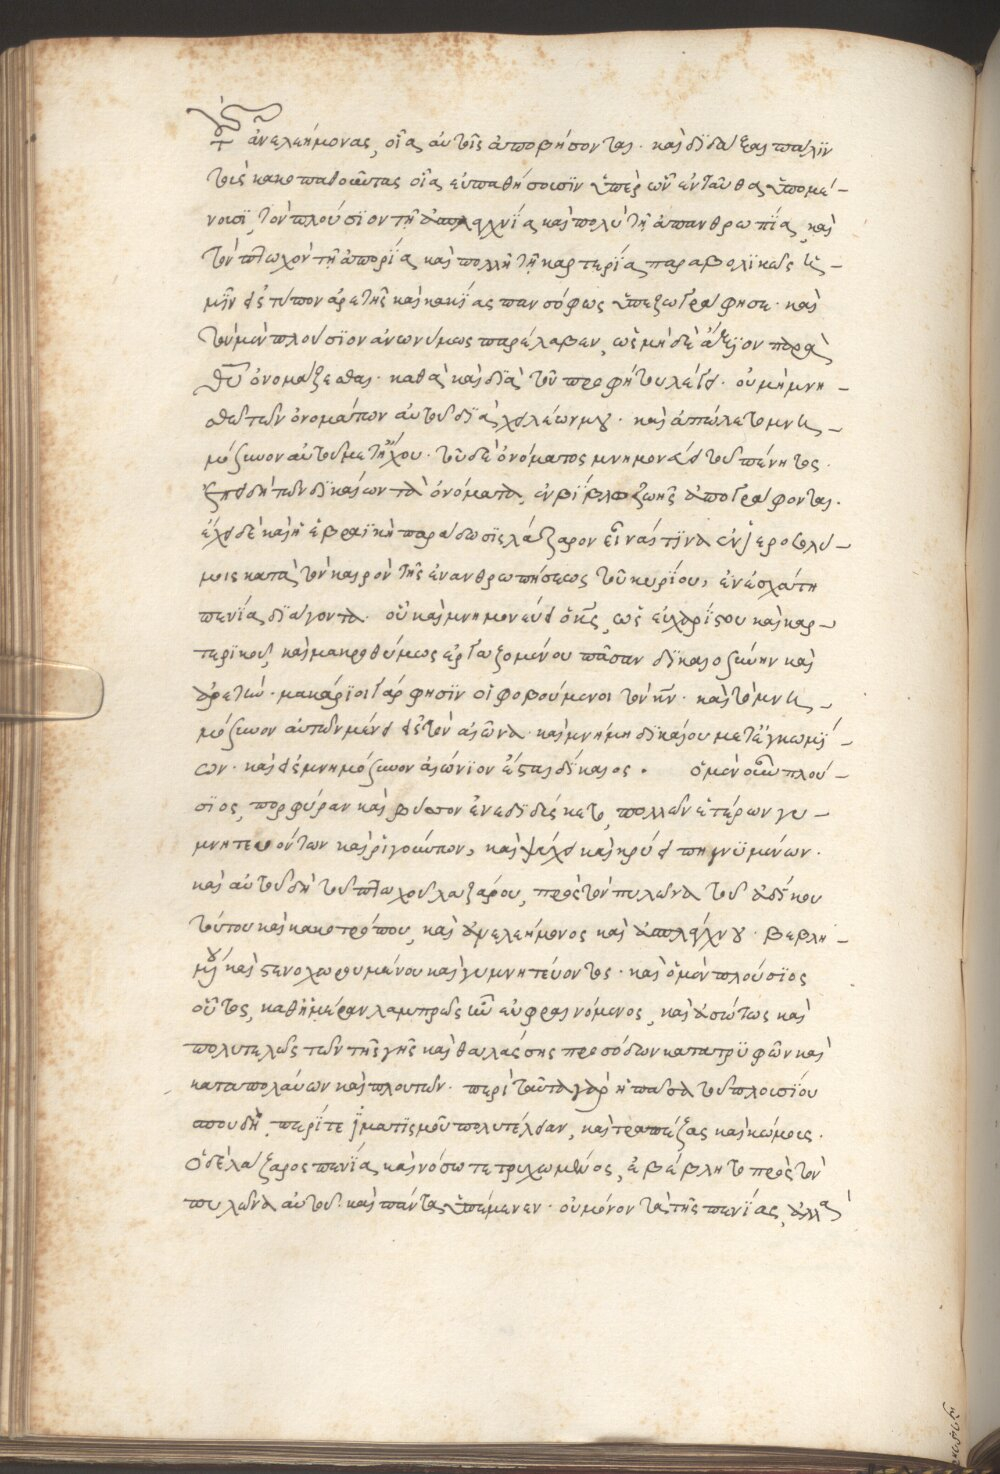 ἀνελεήμονας, οἷα αὐτοῖς ἀποβήσονται· καὶ διδάξας πάλιν
τοὺς κακοπαθοῦντας οἷα εὐπαθήσουσιν ὑπὲρ ὧν ἐνταῦθα ὑπομέ-
νουσι, τὸν πλούσιον τῇ ἀσπλαγχνίᾳ καὶ πολὺ τῇ ἀπανθρωπίᾳ, καὶ
τὸν πτωχὸν τῇ ἀπορίᾳ καὶ πολλῇ τῇ καρτερίᾳ παραβολικῶς ἡ-
μῖν εἰς τύπον ἀρετῆς καὶ κακίας πανσόφως ὑπεζωγράφησε· καὶ
τὸν μὲν πλούσιον ἀνωνύμως παρέλαβεν, ὡς μηδὲ ἄξιον παρὰ
θυ ὀνομάζεσθαι· καθὰ καὶ διὰ τοῦ προφήτου λέγει· οὐ μὴ μνη-
σθῶ τῶν ὀνομάτων αὐτοῦ διὰ χειλέων μου· καὶ ἀπώλετο μνη-
μόσυνον αὐτοῦ μετ' ἤχου· τοῦ δὲ ὀνόματος μνημονεύει τοῦ πένητος·
ἐπειδὴ τῶν δικαίων τὰ ὀνόματα, ἐν βίβλῳ ζωῆς ἀπογράφονται·
ἔχει δὲ καὶ ἡ ἑβραϊκὴ παράδοσις λάζαρον εἶναί τινα ἐν ἱεροσολύ-
μοις κατὰ τὸν καιρὸν τῆς ἐνανθρωπήσεως τοῦ κυρίου, ἐν ἐσχάτῃ
πενίᾳ διάγοντα· οὗ καὶ μνημονεύει ὁ κς, ὡς εὐχαρίστου καὶ καρ-
τερικοῦ, καὶ μακροθύμως ἐργαζομένου πᾶσαν δικαιοσύνην καὶ
ἀρετήν· μακάριοι γάρ φησιν οἱ φοβούμενοι τὸν κν· καὶ τὸ μνη-
μόσυνον αὐτῶν μένει εἰς τὸν αἰῶνα· καὶ μνήμη δικαίου μετ' ἐγκωμί-
ων· καὶ εἰς μνημόσυνον αἰώνιον ἔσται δίκαιος. Ὁ μὲν οὖν πλού-
σιος, πορφύραν καὶ βύσσον ἐνεδιδύσκετο, πολλῶν ἑτέρων γυ-
μνητευόντων καὶ ῥιγούντων, καὶ ψύχει καὶ κρύει πηγνυμένων·
καὶ αὐτοῦ δὴ τοῦ πτωχοῦ λαζάρου, πρὸς τὸν πυλῶνα τοῦ ἀδίκου
τούτου καὶ κακοτρόπου, καὶ ἀνελεήμονος καὶ ἀσπλάγχνου· βεβλη-
μένου καὶ στενοχωρουμένου καὶ γυμνητεύοντος· καὶ ὁ μὲν πλούσιος
οὗτος, καθ' ἡμέραν λαμπρῶς ἦν εὐφραινόμενος, καὶ ἀσώτως καὶ
πολυτελῶς τῶν τῆς γῆς καὶ θαλάσσης προσόδων κατατρυφῶν καὶ
καταπολαύων καὶ πλουτῶν· περὶ ταῦτα γὰρ ἡ πᾶσα τοῦ πλουσίου
σπουδή, περί τε ἱματισμοῦ πολυτέλειαν, καὶ τραπέζας καὶ κώμους.
Ὁ δὲ λάζαρος πενίᾳ καὶ νόσῳ τετρυχωμένος, ἐβέβλητο πρὸς τὸν
πυλῶνα αὐτοῦ· καὶ πάντα ὑπέμενεν· οὐ μόνον τὰ τῆς πενίας, ἀλλὰ